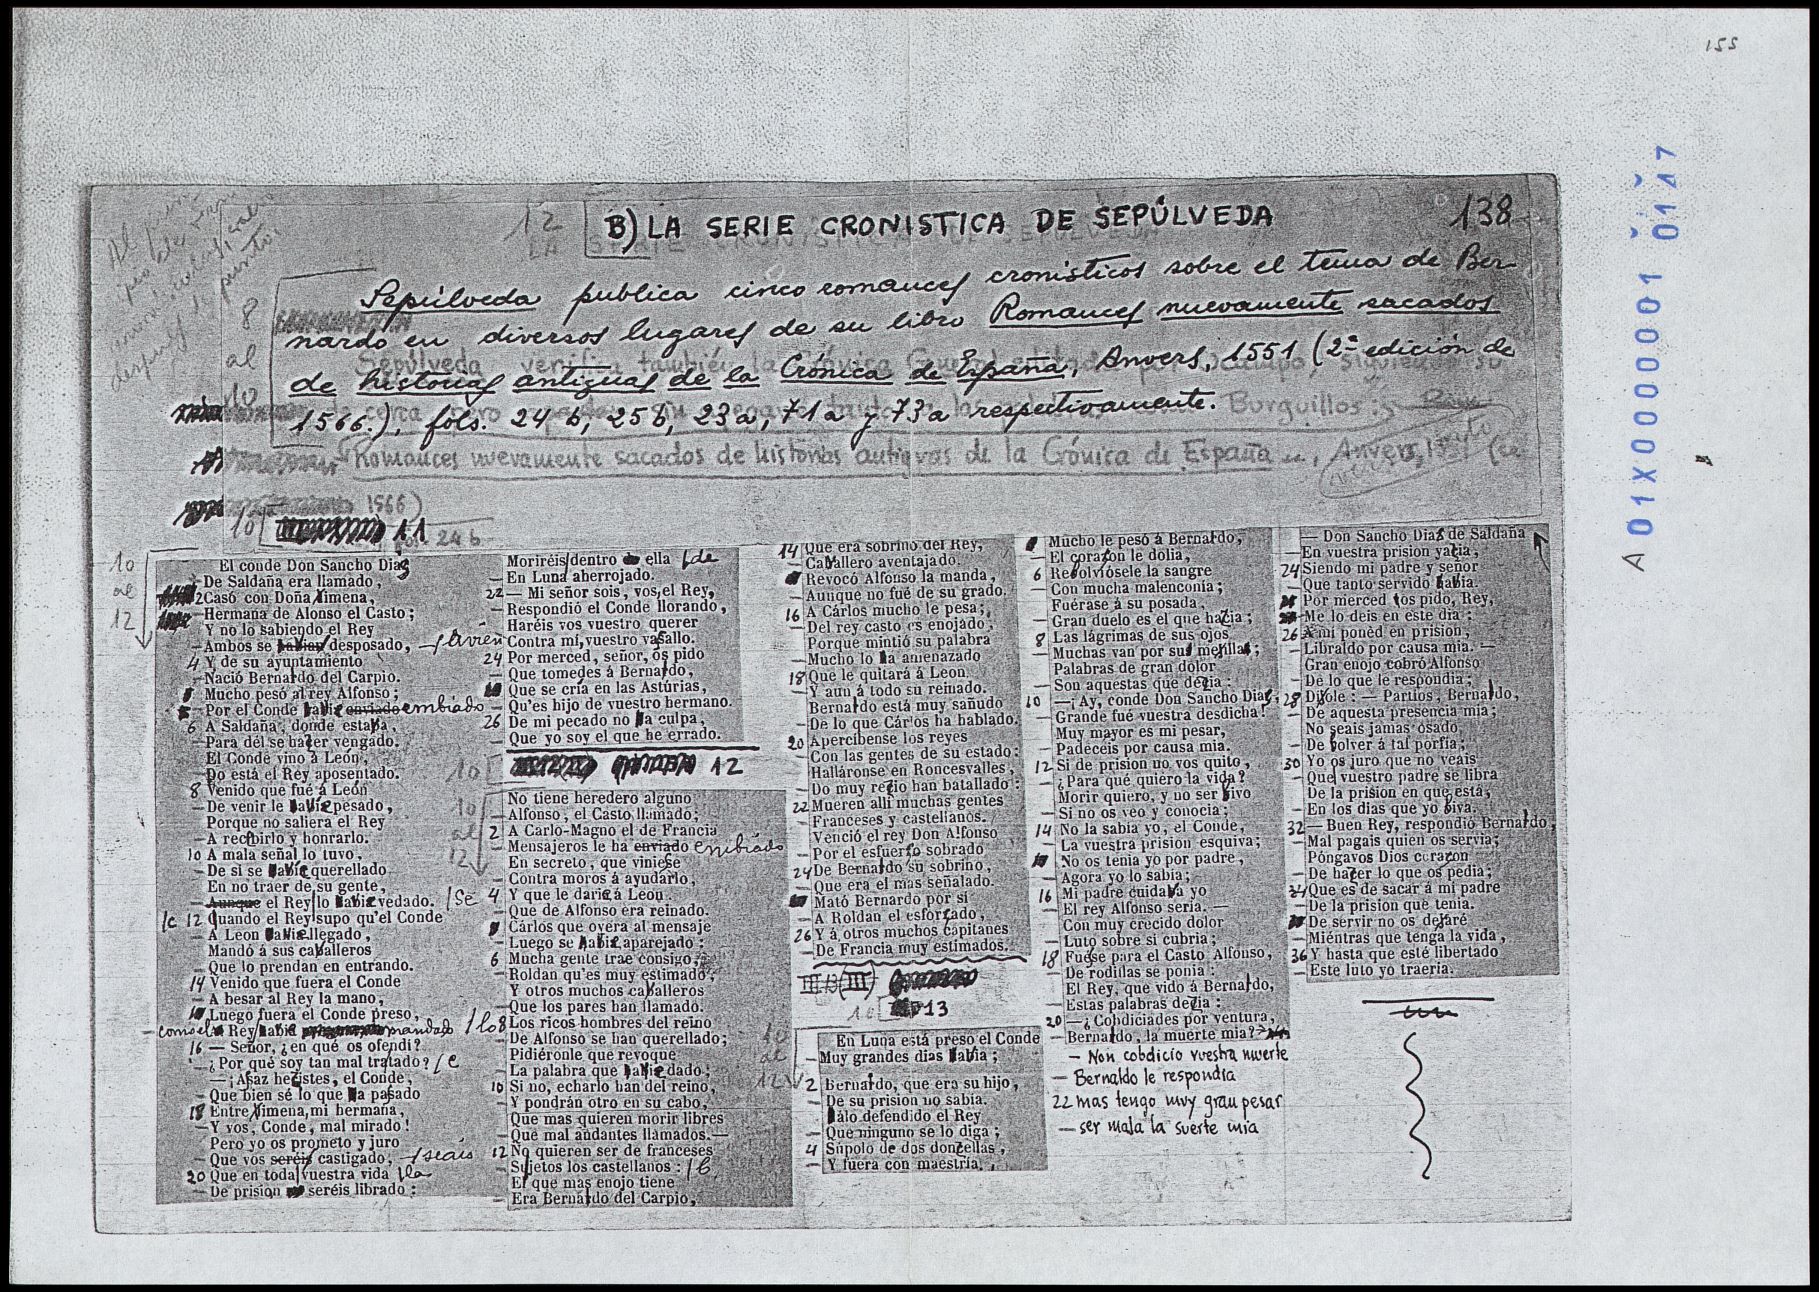 155
138
B) LA SERIE CRONISTICA DE SEPÚLVEDA
12
Sepúlveda publica cinco romances cronísticos sobre el tema de Ber-
nardo en diversos lugares de su libro Romances nuevamente sacados
de historias antiguas de la Crónica de España, Anvers, 1551 (2ª edición de
1566.), fols. 24 b, 25 b, 23 a, 71 a y 73 a respectivamente.
8
al
10
Romances nuevamente sacados de historias antiguas de la Crónica de España
1566)
10 11
24 b
10
al
12
El conde Don Sancho Dias
De Saldaña era llamado,
2 Casó con Doña Ximena,
Hermana de Alonso el Casto;
Y no lo sabiendo el Rey
Ambos se habian desposado, avien
4 Y de su ayuntamiento
Nació Bernardo del Carpio.
Mucho pesó al rey Alfonso;
Por el Conde habie enviado embiado
6 A Saldaña, donde estaba,
Para dél se hacer vengado.
El Conde vino á Leon,
Do está el Rey aposentado.
8 Venido que fué á León
De venir le habie pesado,
Porque no saliera el Rey
A recibirlo y honrarlo.
10 A mala señal lo tuvo,
De si se habie querellado
En no traer de su gente,
Aunque el Rey lo habie vedado. /Se
/c 12 Quando el Rey supo qu'el Conde
A Leon habie llegado,
Mandó á sus caballeros
Que lo prendan en entrando.
14 Venido que fuera el Conde
A besar al Rey la mano,
Luego fuera el Conde preso,
como el Rey habie mandado /lo
16 — Señor, ¿en qué os ofendi?
¿Por qué soy tan mal tratado? /e
— ¡Asaz hecistes, el Conde,
Que bien sé lo que ha pasado
18 Entre Ximena, mi hermana,
Y vos, Conde, mal mirado!
Pero yo os prometo y juro
Que vos seréis castigado, seais
20 Que en toda vuestra vida /la
De prision seréis librado:
Moriréis dentro ella /de
En Luna aherrojado.
22 — Mi señor sois, vos, el Rey,
Respondió el Conde llorando,
Haréis vos vuestro querer
Contra mí, vuestro vasallo.
24 Por merced, señor, os pido
Que tomedes á Bernardo,
Que se cria en las Astúrias,
Qu'es hijo de vuestro hermano.
26 De mi pecado no ha culpa,
Que yo soy el que he errado.
10 12
10
al
12
No tiene heredero alguno
Alfonso, el Casto llamado;
2 A Carlo-Magno el de Francia
Mensajeros le ha enviado embiado
En secreto, que viniese
Contra moros á ayudarlo,
4 Y que le darie á Leon
Que de Alfonso era reinado.
Cárlos que oyera al mensaje
Luego se habie aparejado:
6 Mucha gente trae consigo,
Roldan qu'es muy estimado,
Y otros muchos caballeros
Que los pares han llamado.
8 Los ricos hombres del reino
De Alfonso se han querellado;
Pidiéronle que revoque
La palabra que habie dado;
10 Si no, echarlo han del reino,
Y pondrán otro en su cabo,
Que mas quieren morir libres
Que mal andantes llamados.—
12 No quieren ser de franceses
Sujetos los castellanos: /b
El que mas enojo tiene
Era Bernardo del Carpio,
14 Que era sobrino del Rey,
Caballero aventajado.
Revocó Alfonso la manda,
Aunque no fué de su grado.
16 A Cárlos mucho le pesa;
Del rey casto es enojado,
Porque mintió su palabra
Mucho lo ha amenazado
18 Que le quitará á Leon
Y aun á todo su reinado.
Bernardo está muy sañudo
De lo que Cárlos ha hablado.
20 Apercibense los reyes
Con las gentes de su estado:
Halláronse en Roncesvalles,
Do muy recio han batallado:
22 Mueren allí muchas gentes
Franceses y castellanos.
Venció el rey Don Alfonso
Por el esfuerzo sobrado
24 De Bernardo su sobrino,
Que era el mas señalado.
Mató Bernardo por si
A Roldan el esforzado,
26 Y á otros muchos capitanes
De Francia muy estimados.
(III)
10 13
10
al
12
En Luna está preso el Conde
Muy grandes dias habia;
2 Bernardo, que era su hijo,
De su prision no sabia.
Hálo defendido el Rey
Que ninguno se lo diga;
4 Súpolo de dos doncellas,
Y fuera con maestria.
Mucho le pesó á Bernardo,
El corazon le dolia,
6 Revolviósele la sangre
Con mucha malenconia;
Fuérase á su posada,
Gran duelo es el que hacia;
8 Las lágrimas de sus ojos
Muchas van por sus mejillas;
Palabras de gran dolor
Son aquestas que decia:
10 — ¡Ay, conde Don Sancho Dias,
Grande fué vuestra desdicha!
Muy mayor es mi pesar,
Padeceis por causa mia.
12 Si de prision no vos quito,
¿Para qué quiero la vida?
Morir quiero, y no ser vivo
Si no os veo y conocia;
14 No la sabia yo, el Conde,
La vuestra prision esquiva;
No os tenia yo por padre,
Agora yo lo sabia;
16 Mi padre cuidaba yo
El rey Alfonso seria. —
Con muy crecido dolor
Luto sobre si cubria;
18 Fuése para el Casto Alfonso,
De rodillas se ponia:
El Rey, que vido á Bernaldo,
Estas palabras decia:
20 — ¿Cobdiciades por ventura,
Bernardo, la muerte mia?
— Non cobdicio vuestra muerte
— Bernaldo le respondia
22 mas tengo muy gran pesar
— ser mala la suerte mia
— Don Sancho Dias de Saldaña
En vuestra prision yacia,
24 Siendo mi padre y señor
Que tanto servido habia.
Por merced vos pido, Rey,
Me lo deis en este dia:
26 A mí poned en prision,
Libraldo por causa mia. —
Gran enojo cobró Alfonso
De lo que le respondia;
28 Díjole: — Partíos, Bernaldo,
De aquesta presencia mia;
No seais jamas osado
De volver á tal porfia;
30 Yo os juro que no veais
Que vuestro padre se libra
De la prision en que está,
En los dias que yo viva.
32 — Buen Rey, respondió Bernaldo,
Mal pagais quien os servia;
Póngavos Dios corazon
De hacer lo que os pedia;
34 Que es de sacar á mi padre
De la prision que tenia.
De servir no os dejaré
Miéntras que tenga la vida,
36 Y hasta que esté libertado
Este luto yo traeria.
A 01X0000001 0147